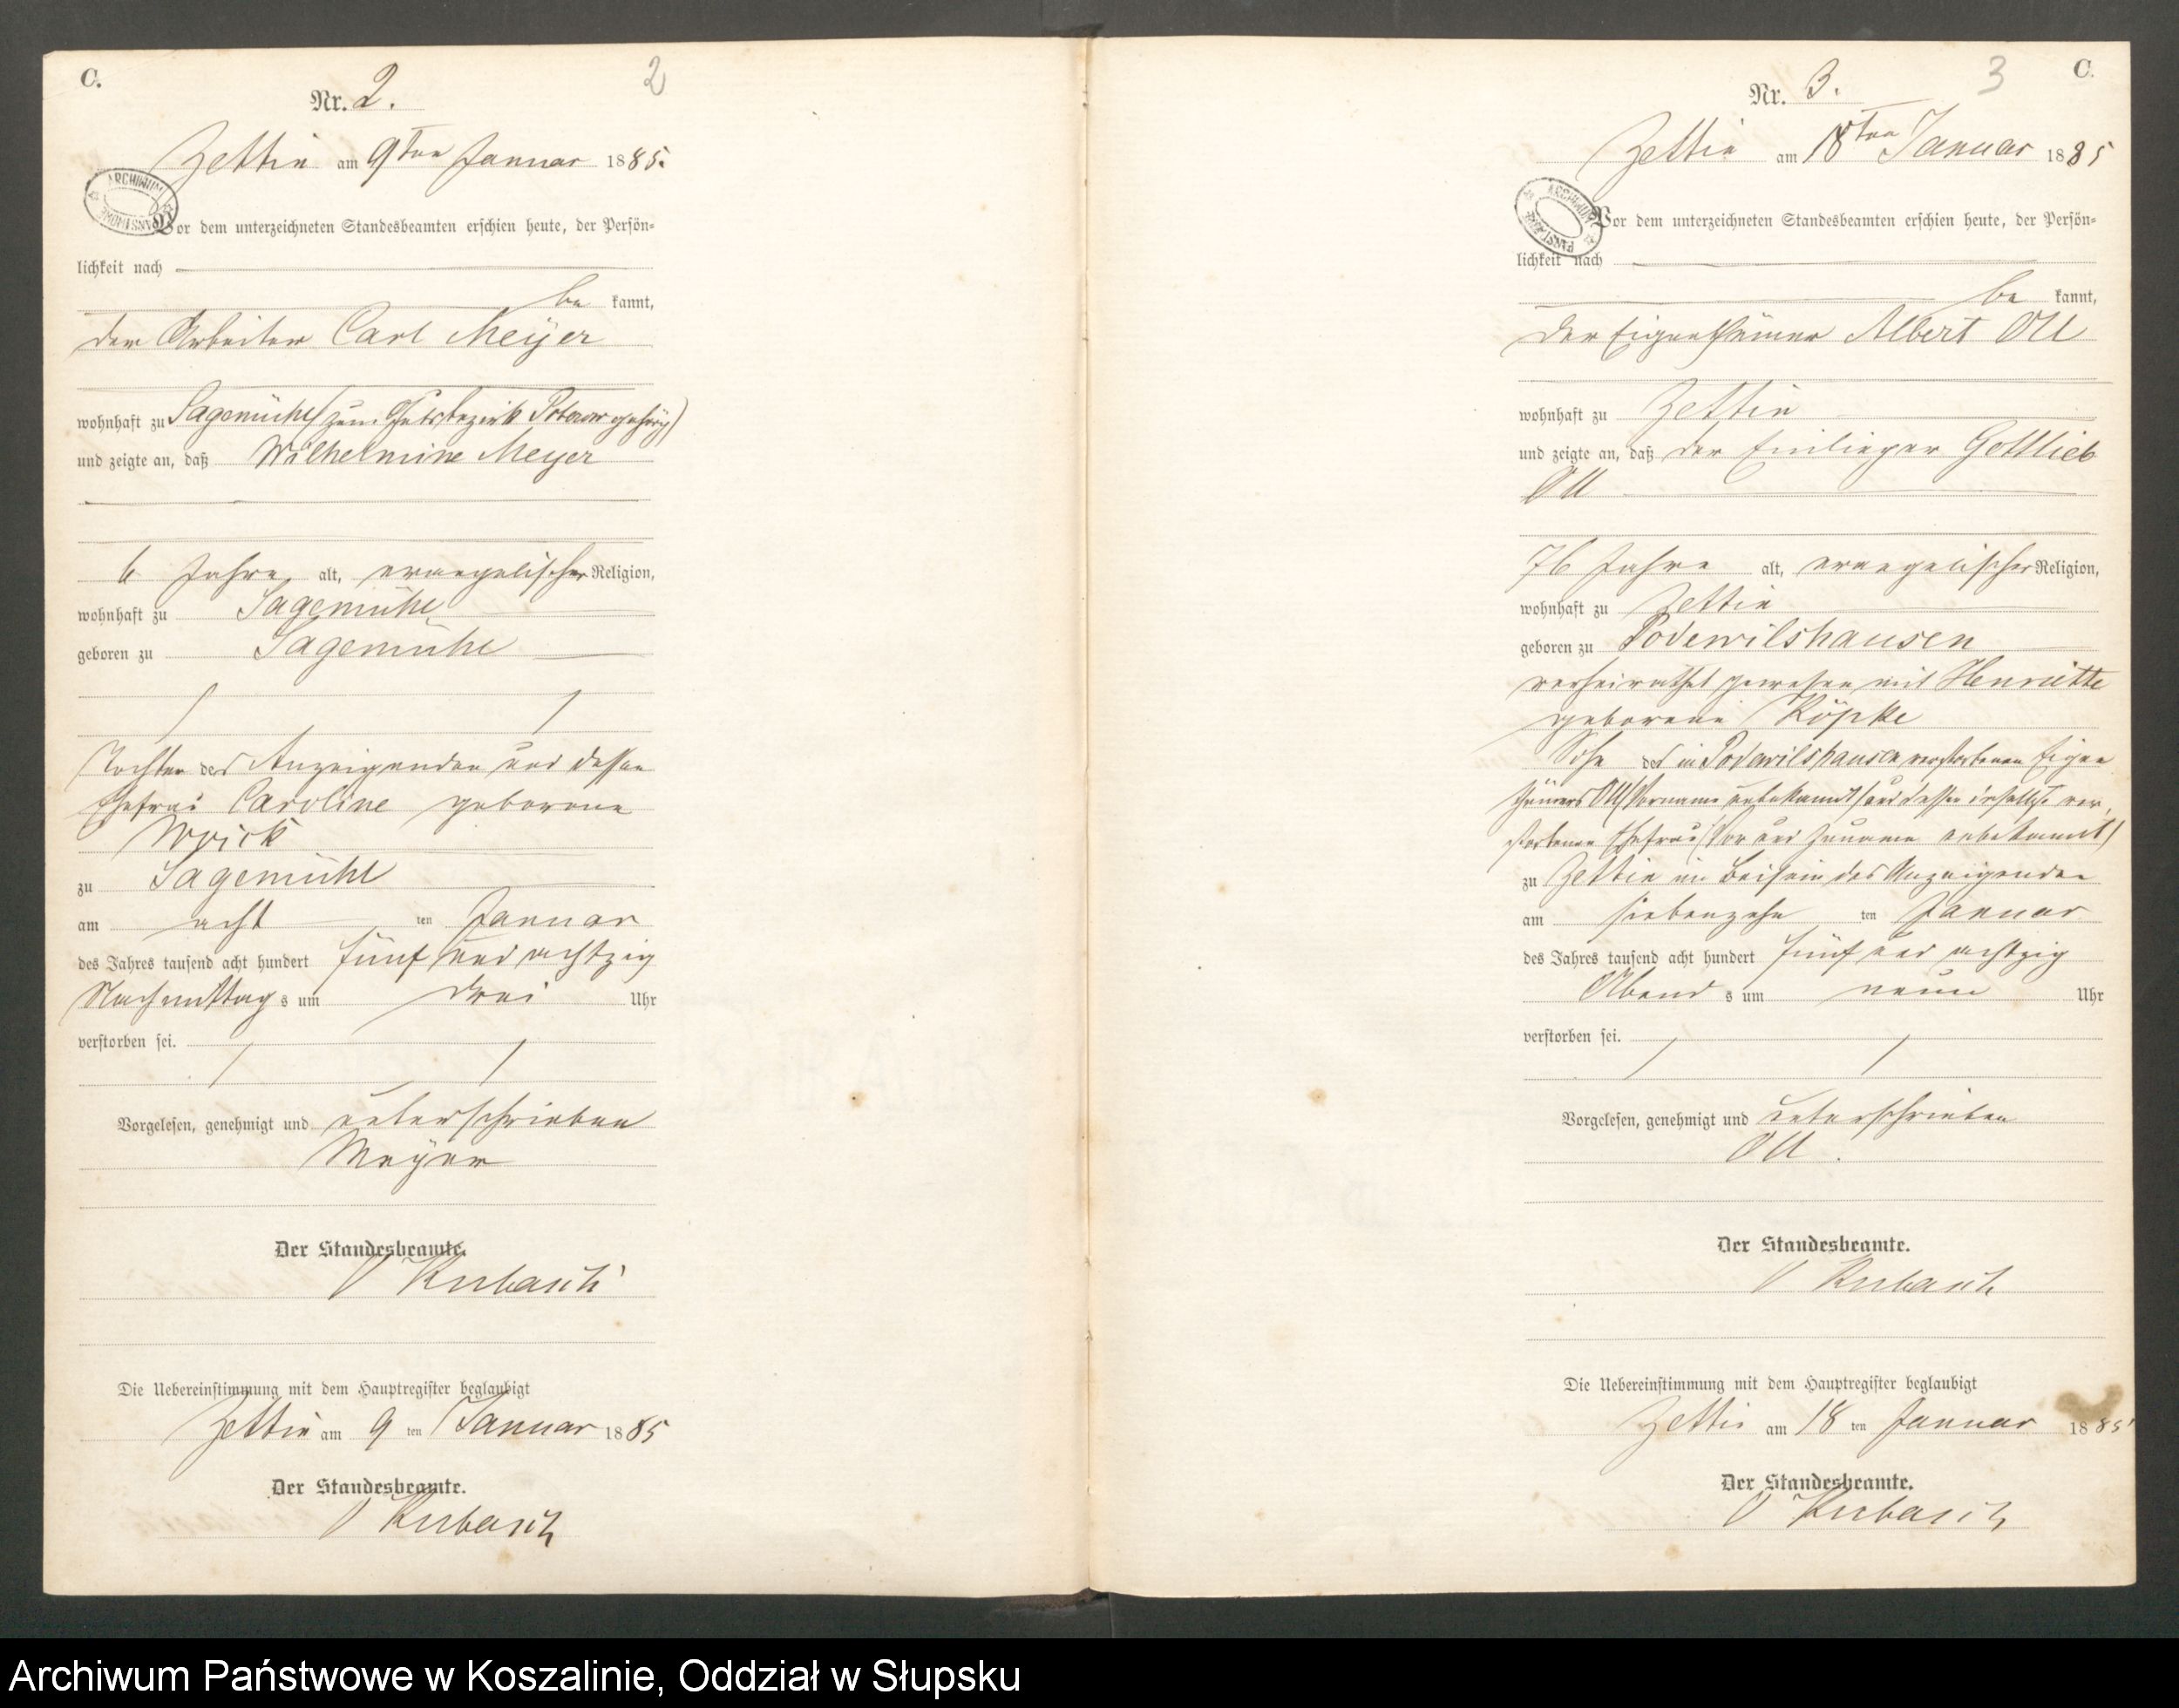 C.
2
Nr. 2.
Zettin am 9ten Januar 1885.
ARCHIWUM PAŃSTWOWE
Vor dem unterzeichneten Standesbeamten erschien heute, der Persön-
lichkeit nach
be kannt,
der Arbeiter Carl Meÿer
wohnhaft zu Sagemühl (zum Gutsbezirk Poberow gehörig)
und zeigte an, daß Wilhelmine Meyer
6 Jahre alt, evangelischer Religion,
wohnhaft zu Sagemühl
geboren zu Sagemühl
Tochter des Anzeigenden und dessen
Ehefrau Caroline geborene
zu Sagemühl
am acht ten Januar
des Jahres tausend acht hundert fünf und achtzig
Nachmittag s um drei Uhr
verstorben sei.
Vorgelesen, genehmigt und unterschrieben
Meÿer
Der Standesbeamte.
Kubasch
Die Uebereinstimmung mit dem Hauptregister beglaubigt
Zettin am 9 ten Januar 1885
Der Standesbeamte.
Kubasch
C.
3
Nr. 3.
Zettin am 18ten Januar 1885
ARCHIWUM PAŃSTWOWE
Vor dem unterzeichneten Standesbeamten erschien heute, der Persön-
lichkeit nach
be kannt,
der Eigenthümer Albert Ott
wohnhaft zu Zettin
und zeigte an, daß der Einlieger Gottlieb
Ott
76 Jahre alt, evangelischer Religion,
wohnhaft zu Zettin
geboren zu Podewilshausen
verheirathet gewesen mit Henriette
geborene Köpke
Sohn des in Podewilshausen verstorbenen Eigen
thümers Ott (Vorname unbekannt) und dessen daselbst ver-
storbenen Ehefrau (Vor und Zuname unbekannt)
zu Zettin im Beisein des Anzeigenden
am siebenzehn ten Januar
des Jahres tausend acht hundert fünf und achtzig
Abend s um neun Uhr
verstorben sei.
Vorgelesen, genehmigt und unterschrieben
Ott.
Der Standesbeamte.
Kubasch
Die Uebereinstimmung mit dem Hauptregister beglaubigt
Zettin am 18 ten Januar 1885
Der Standesbeamte.
Kubasch
Archiwum Państwowe w Koszalinie, Oddział w Słupsku